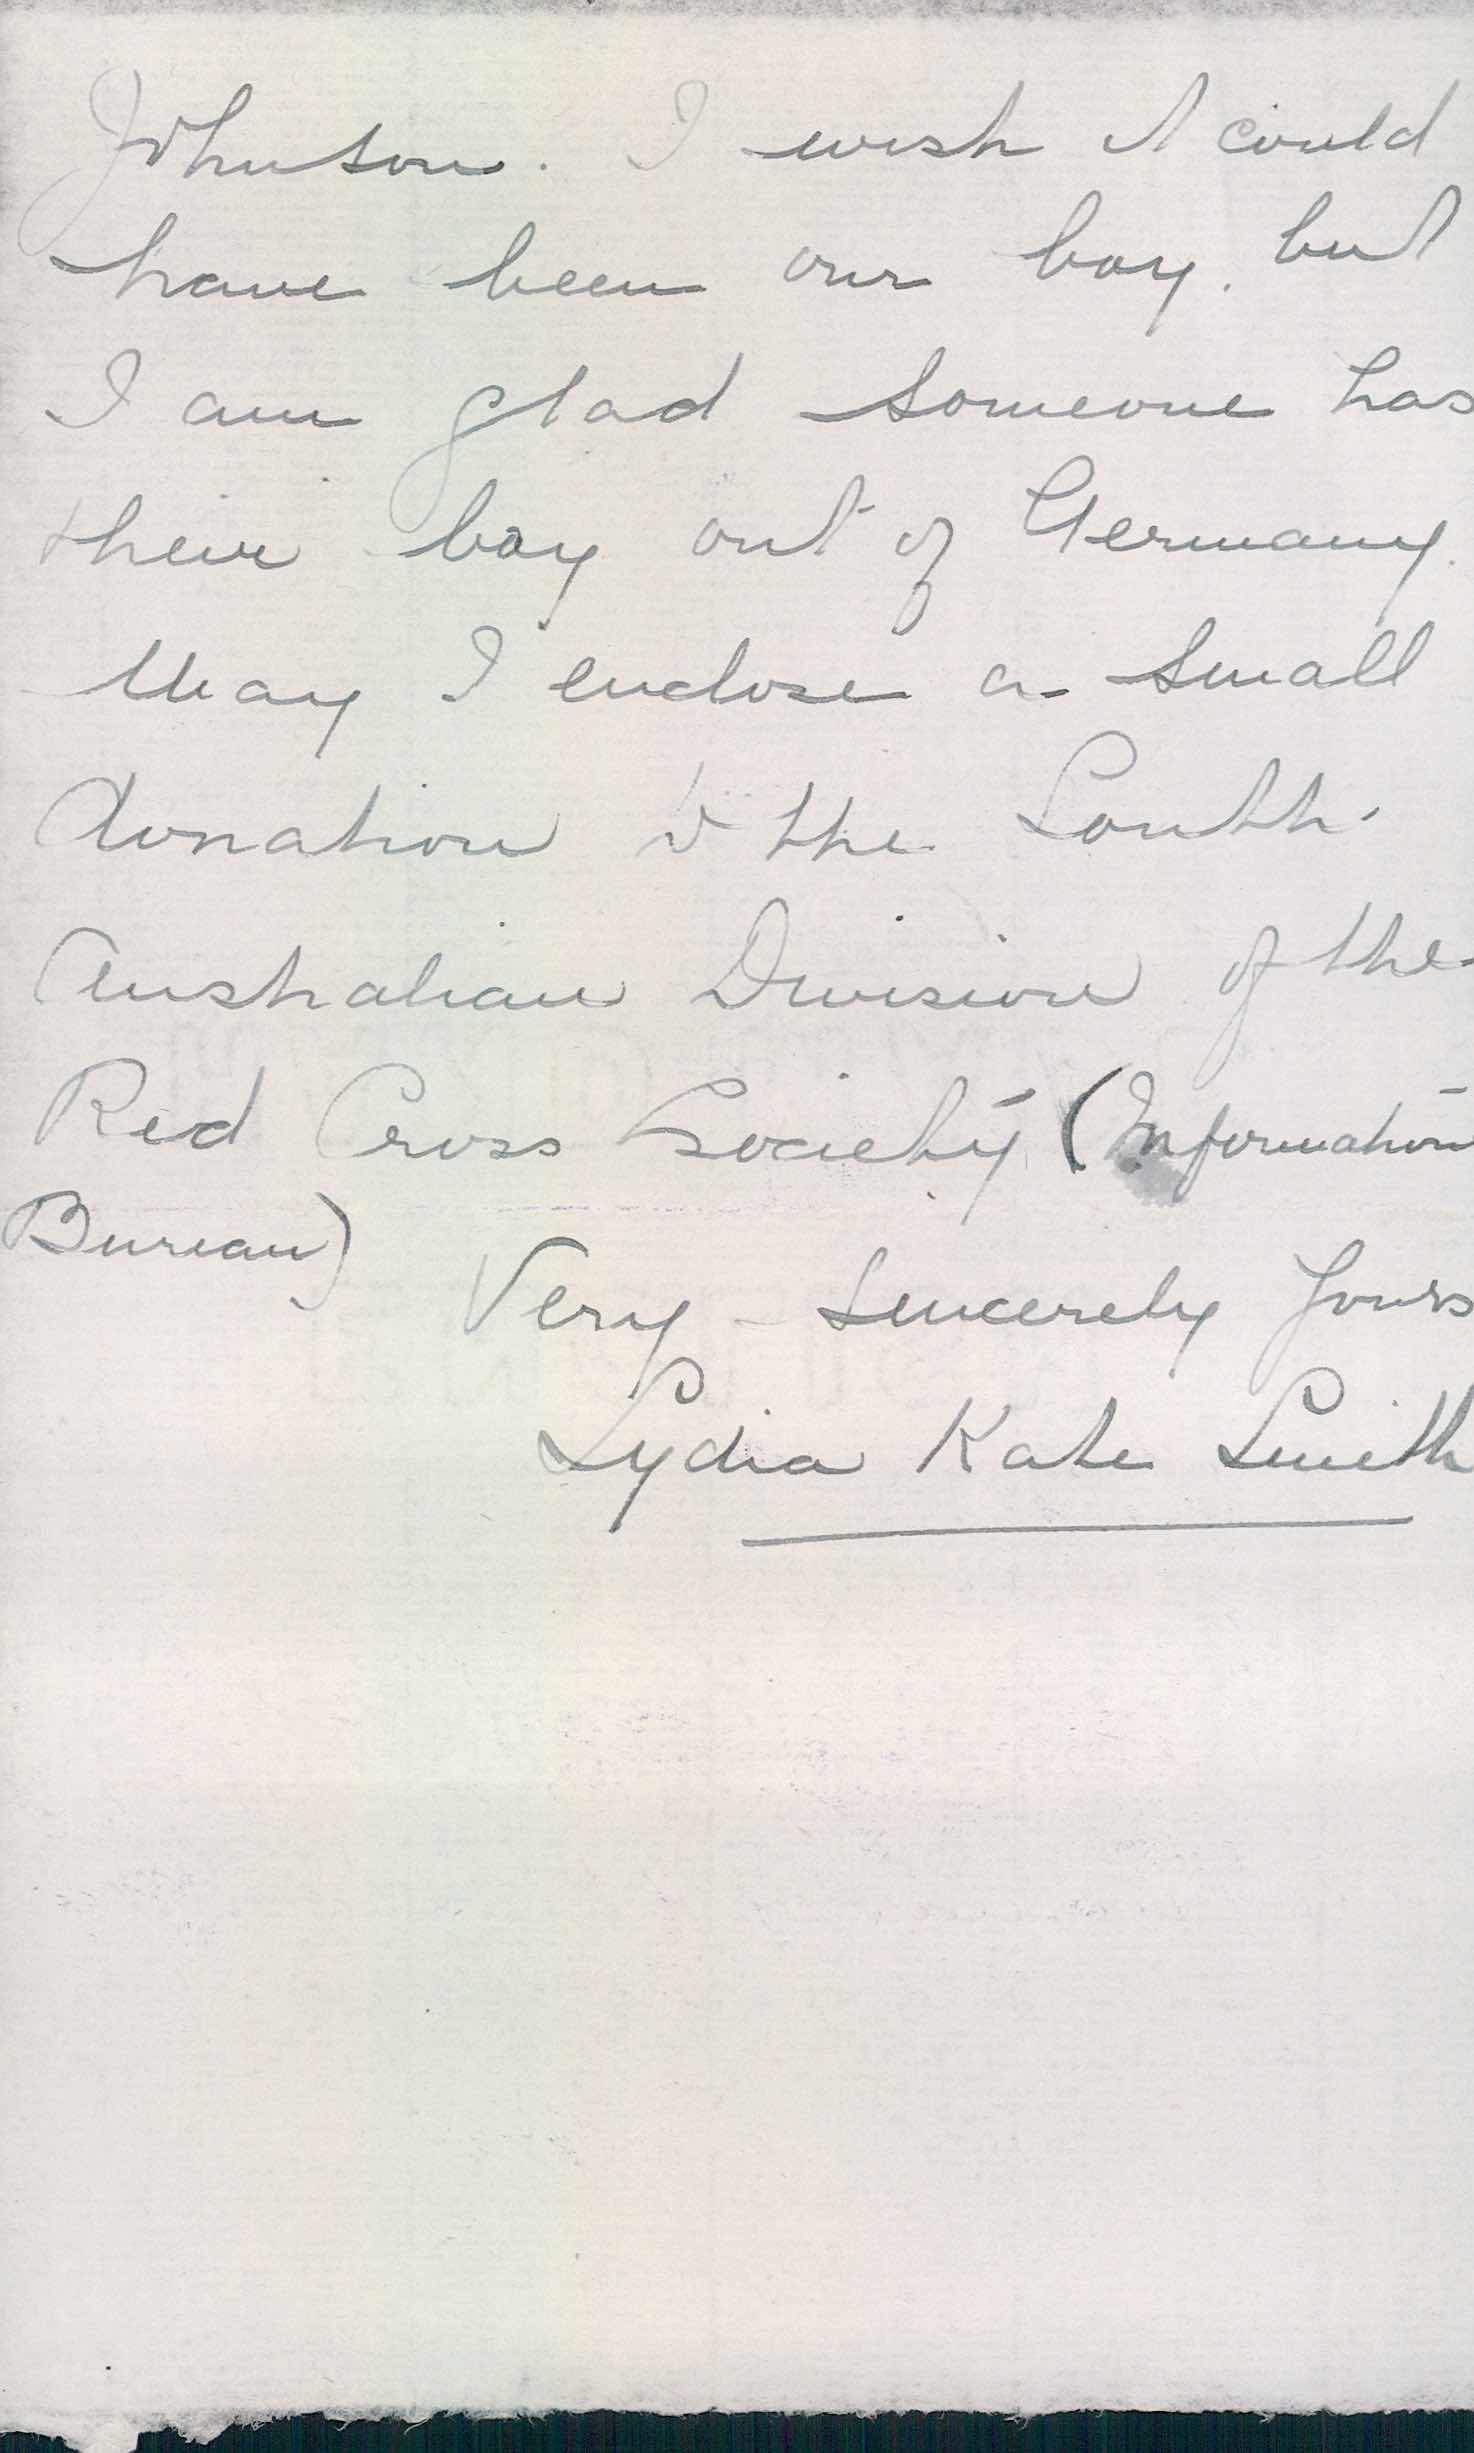 Johnson. I wish it could
have been our boy. but
I am glad someone has
their boy out of Germany.
May I enclose a small
donation to the South
Australian Division of the
Red Cross Society (Information
Bureau)
Very sincerely yours
Lydia Kate Smith